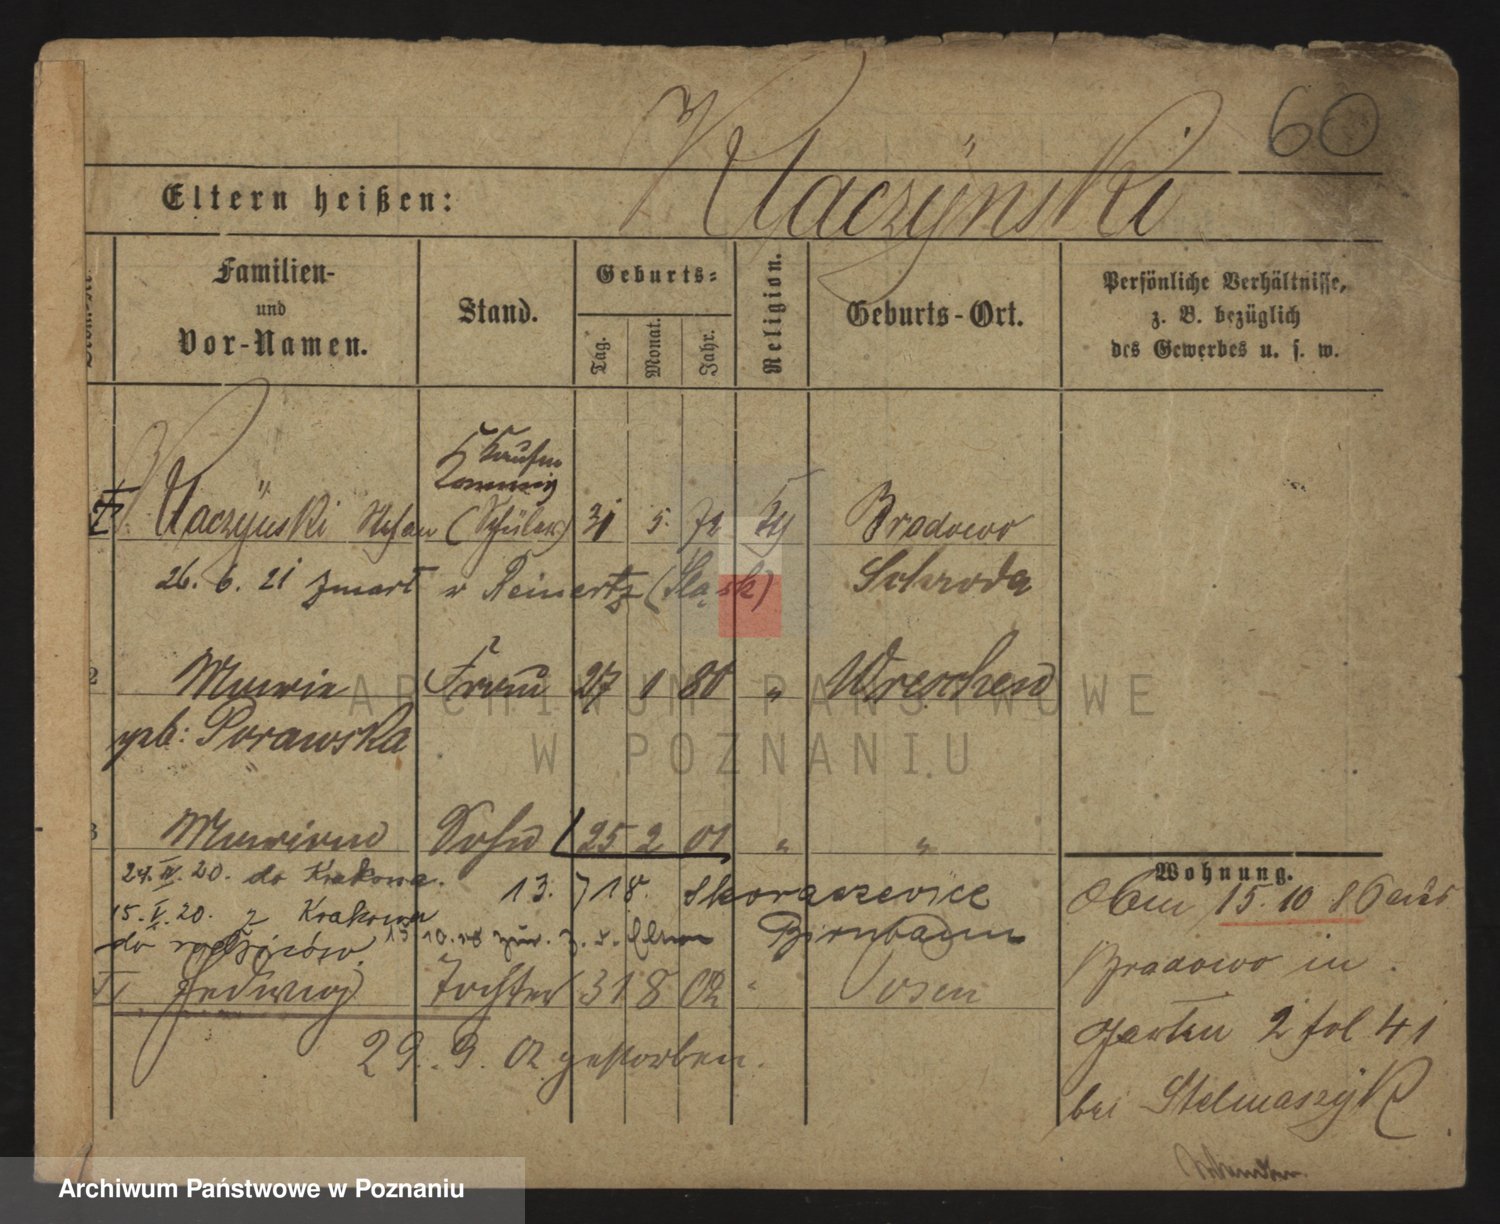 60
Klaczÿnski
Eltern heißen:
Familien- und Vor-Namen.
Stand.
Geburts-
Tag.
Monat.
Jahr.
Religion.
Geburts-Ort.
Persönliche Verhältnisse, z. B. bezüglich des Gewerbes u. s. w.
Kaufm
Klaczÿnski Stefan (Schüler) 31 5. 72 Brodowo
26. 6. 21 zmarł w Reinertz (Śląsk) Schroda
2 Marie Frau 27 1 80 " Wreschen
geb: Porawska
3 Marian Sohn 25 2 01 " "
Wohnung.
24. IV. 20. do Krakowa. 13. 7 18. Skoraczevice
15. V. 20. z Krakowa
do rodziców. 10. 18 zur. z. d. Eltern Birnbaum
Hedwig Tochter 31 8 02 " Posen
29. 9. 02 gestorben.
15. 10 86 aus
Brodowo in
Garten 2 fol 41
bei Stelmaszÿk
ARCHIWUM PAŃSTWOWE
W POZNANIU
Archiwum Państwowe w Poznaniu